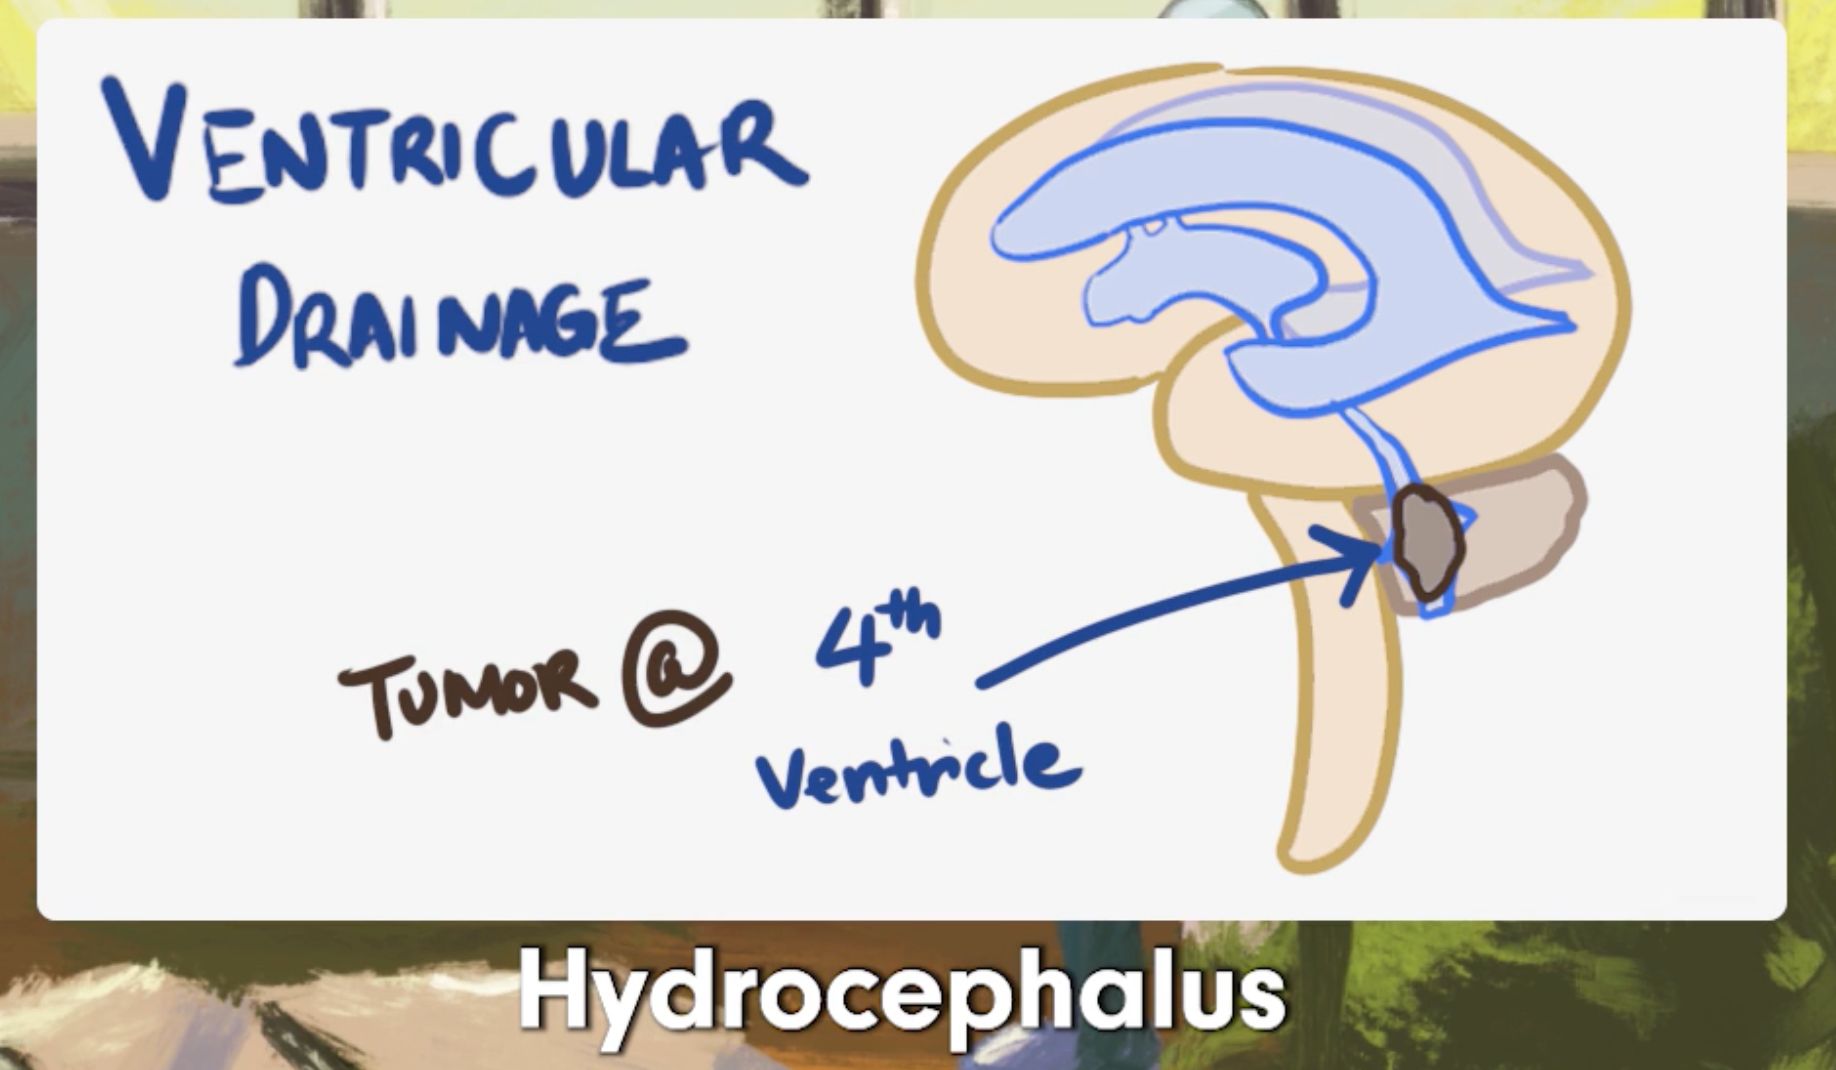 VENTRICULAR
DRAINAGE
TUMOR @ 4th
Ventricle
Hydrocephalus